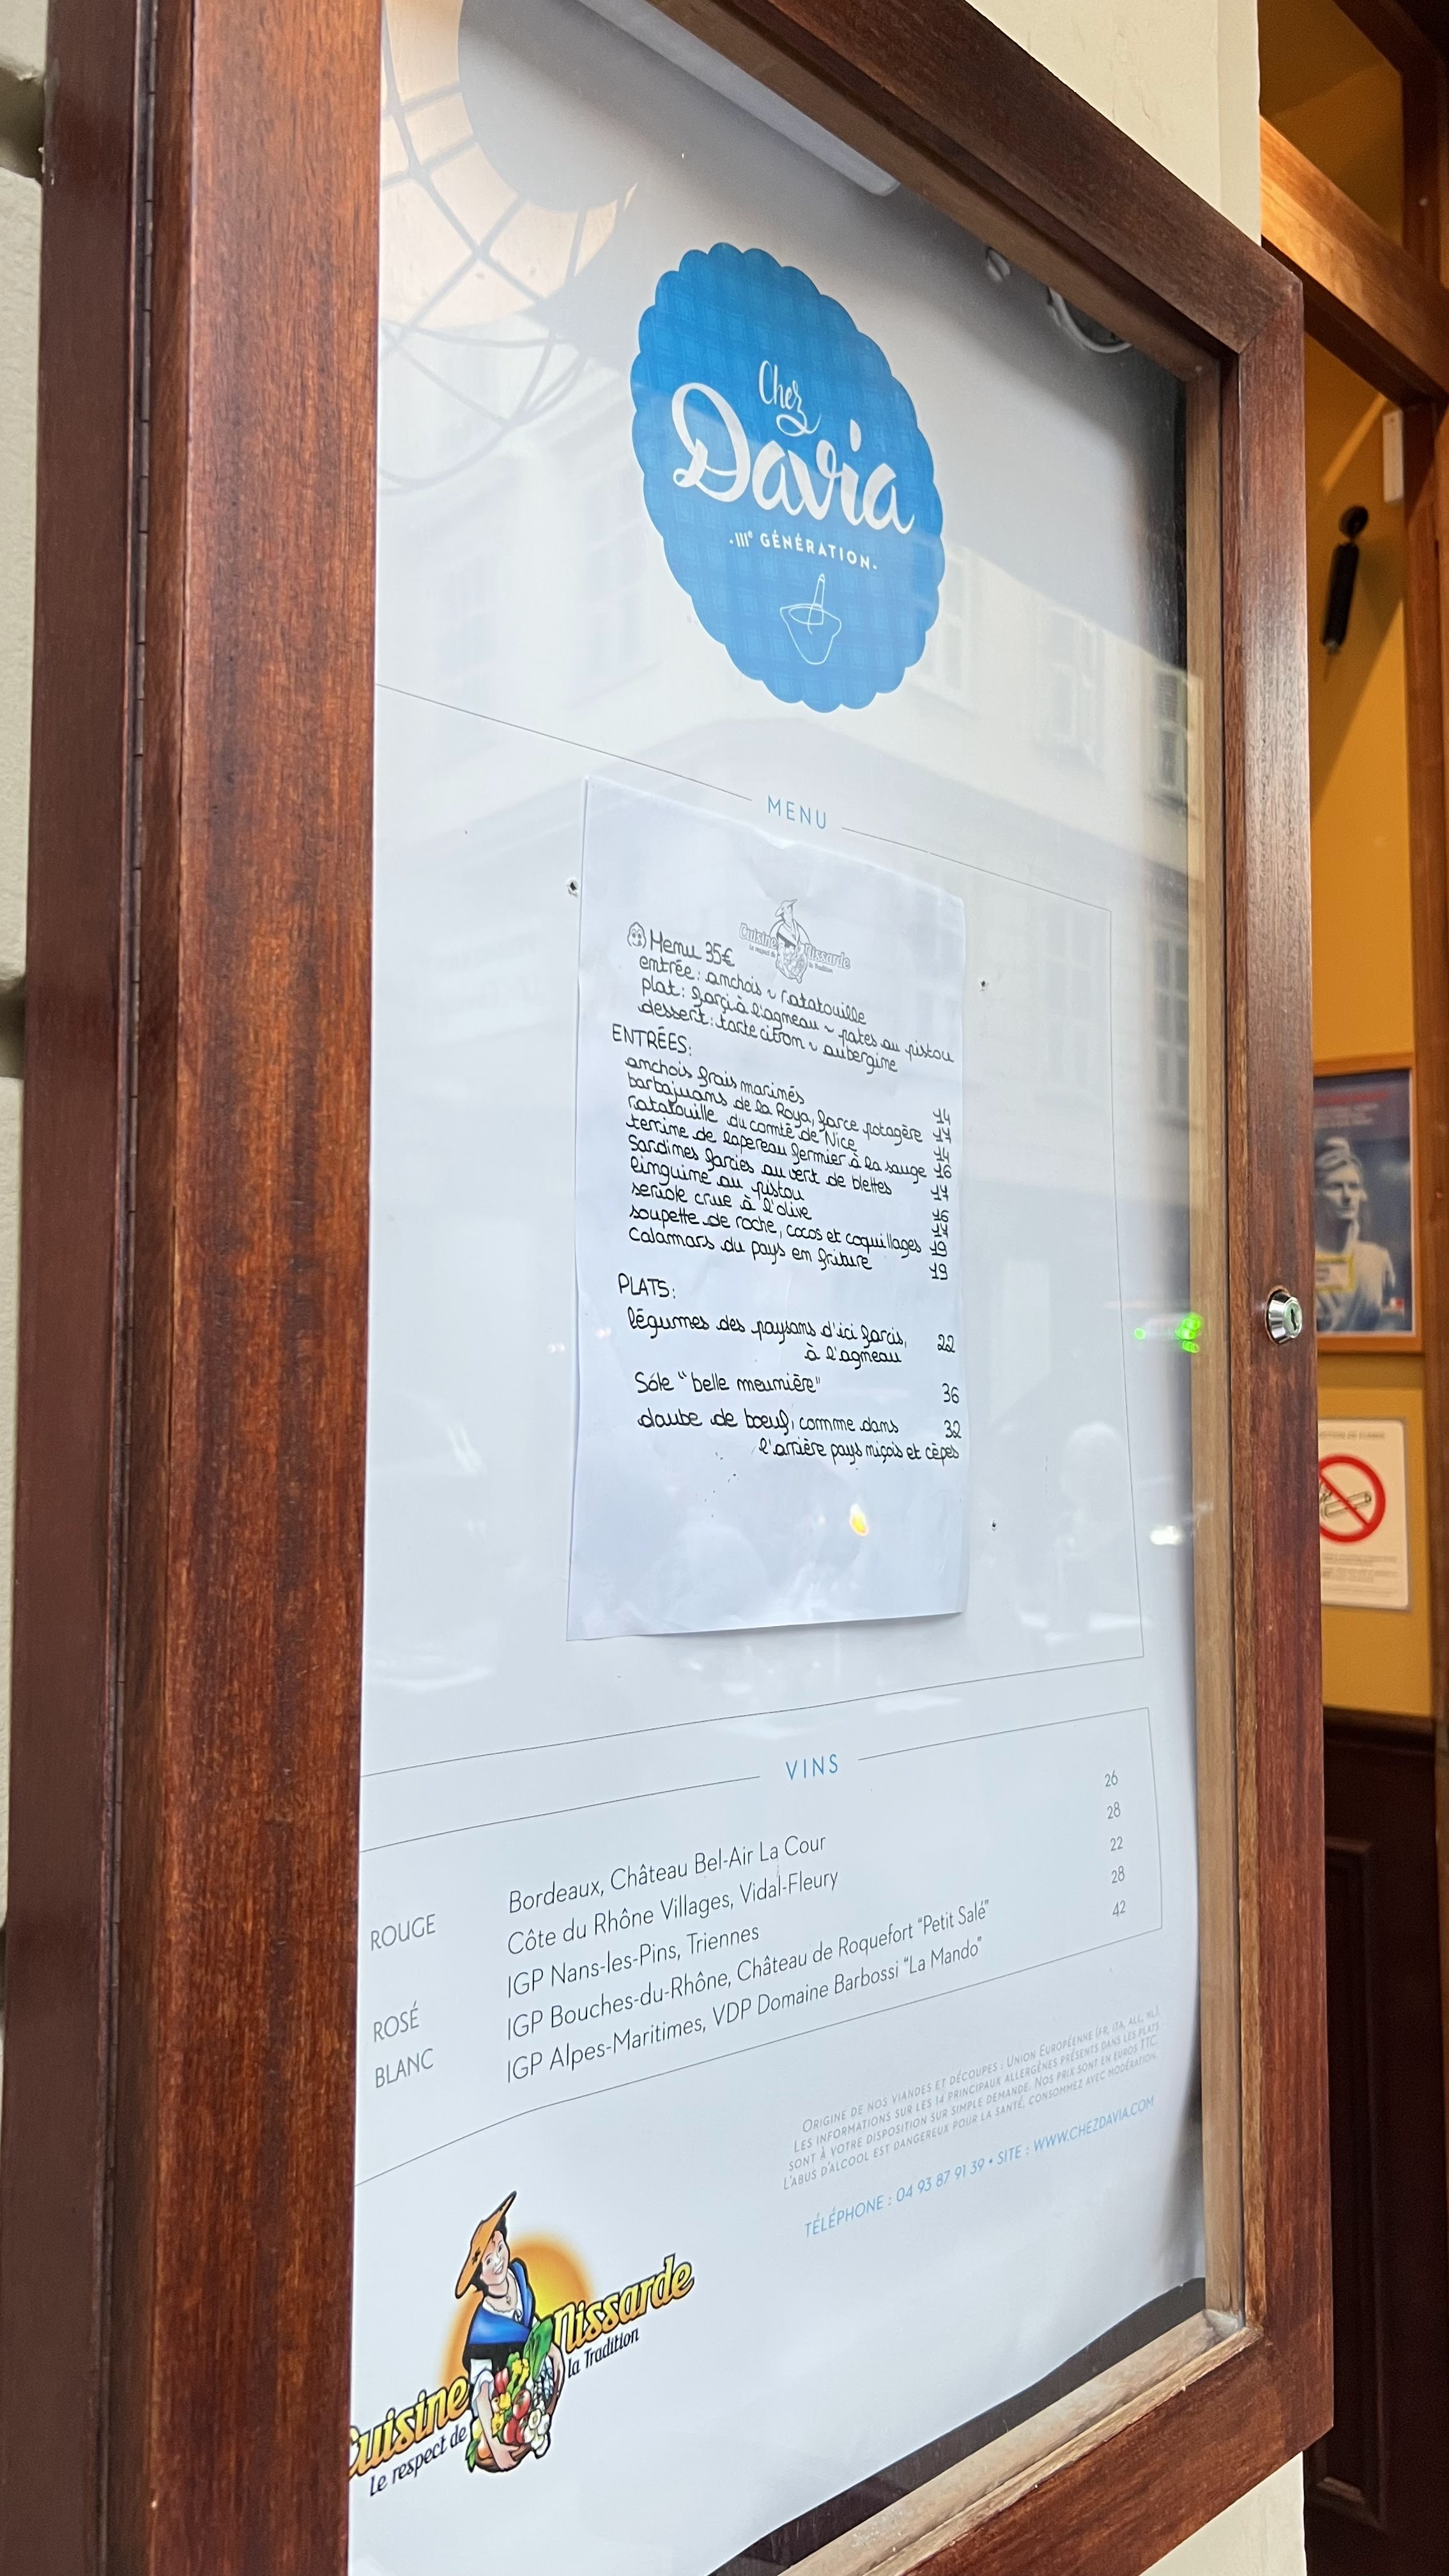 Chez
Davia
·IIIᵉ GÉNÉRATION·
MENU
Cuisine Nissarde
Le respect de la Tradition
Menu 35€
entrée: anchois ~ ratatouille
plat: farçi à l'agneau ~ pates au pistou
dessert: tarte citron ~ aubergine
ENTRÉES:
anchois frais marinés 14
barbajuans de la Roya, farce potagère 14
ratatouille du comté de Nice 14
terrine de lapereau fermier à la sauge 16
Sardines farcies au vert de blettes 17
linguine au pistou 16
seriole crue à l'olive 17
soupette de roche, cocos et coquillages 19
Calamars du pays en friture 19
PLATS:
légumes des paysans d'ici farcis, 22
à l'agneau
Sole "belle meunière" 36
daube de bœuf, comme dans 32
l'arrière pays niçois et cèpes
VINS
ROUGE Bordeaux, Château Bel-Air La Cour 26
Côte du Rhône Villages, Vidal-Fleury 28
ROSÉ IGP Nans-les-Pins, Triennes 22
BLANC IGP Bouches-du-Rhône, Château de Roquefort "Petit Salé" 28
IGP Alpes-Maritimes, VDP Domaine Barbossi "La Mando" 42
ORIGINE DE NOS VIANDES ET DÉCOUPES : UNION EUROPÉENNE (FR, ITA, ALL, NL).
LES INFORMATIONS SUR LES 14 PRINCIPAUX ALLERGÈNES PRÉSENTS DANS LES PLATS
SONT À VOTRE DISPOSITION SUR SIMPLE DEMANDE. NOS PRIX SONT EN EUROS TTC.
L'ABUS D'ALCOOL EST DANGEREUX POUR LA SANTÉ, CONSOMMEZ AVEC MODÉRATION.
TÉLÉPHONE : 04 93 87 91 39 • SITE : WWW.CHEZDAVIA.COM
Cuisine Nissarde
Le respect de la Tradition